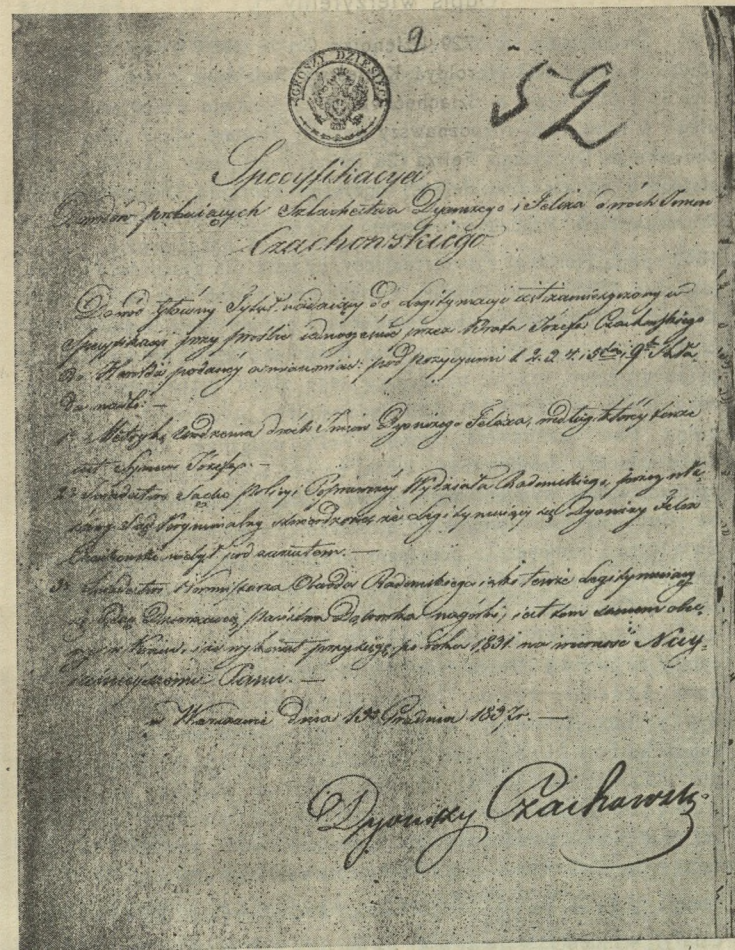 9
GROSZY DZIESIĘĆ
52
Specyfikacya
Dowodów probujących Szlachectwa Dyonizego i Felixa dwóch Imion
Czachowskiego
Dowód główny Tytuł nadaiący do Legitymacyi iest zamieszczony w
Specyfikacyi przy prośbie iednocześnie przez Brata Józefa Czachowskiego
do Herold: podanéy a mianowicie: pod pozycyami 1. 2. 3. 4. i 9
do nauki: —
1o Metrykę Urodzenia dwóch Imion Dyonizego Felixa, według któréy tenże
iest Synem Józefa. —
2o Świadectwo Sądu Policyi Poprawczéy Wydziału Radomskiego, przez
Sąd Kryminalny stwierdzone, że Legitymuiący się Dyonizy Felix
Czachowski nie był pod zarzutem. —
3o Świadectwo Kommissarza Obwodu Radomskiego iako tenże Legitymuiący
się będąc Dzierżawcą Dąbrowka nagórki, iest tem samem
w Kraiu, i że wykonał przysięgę po roku 1831 na wierność Nay-
iaśnieyszemu Panu. —
w Warszawie dnia 13 Grudnia 1837r. —
Dyonizy Czachowski